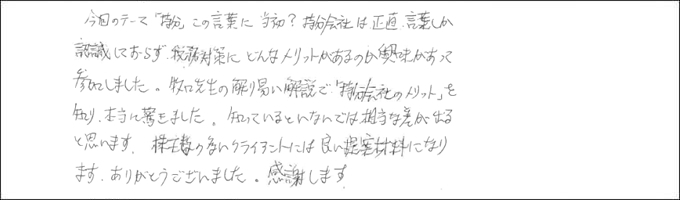 今回のテーマ「持分」この言葉に当初？持分会社は正直、言葉しか
認識しておらず、税務対策にどんなメリットがあるのか興味があって
参加しました。牧口先生の解り易い解説で「持分会社のメリット」を
知り、本当に驚きました。知っているといないでは相当な差が出る
と思います。株主数の多いクライアントには良い提案材料になり
ます。ありがとうございました。感謝します